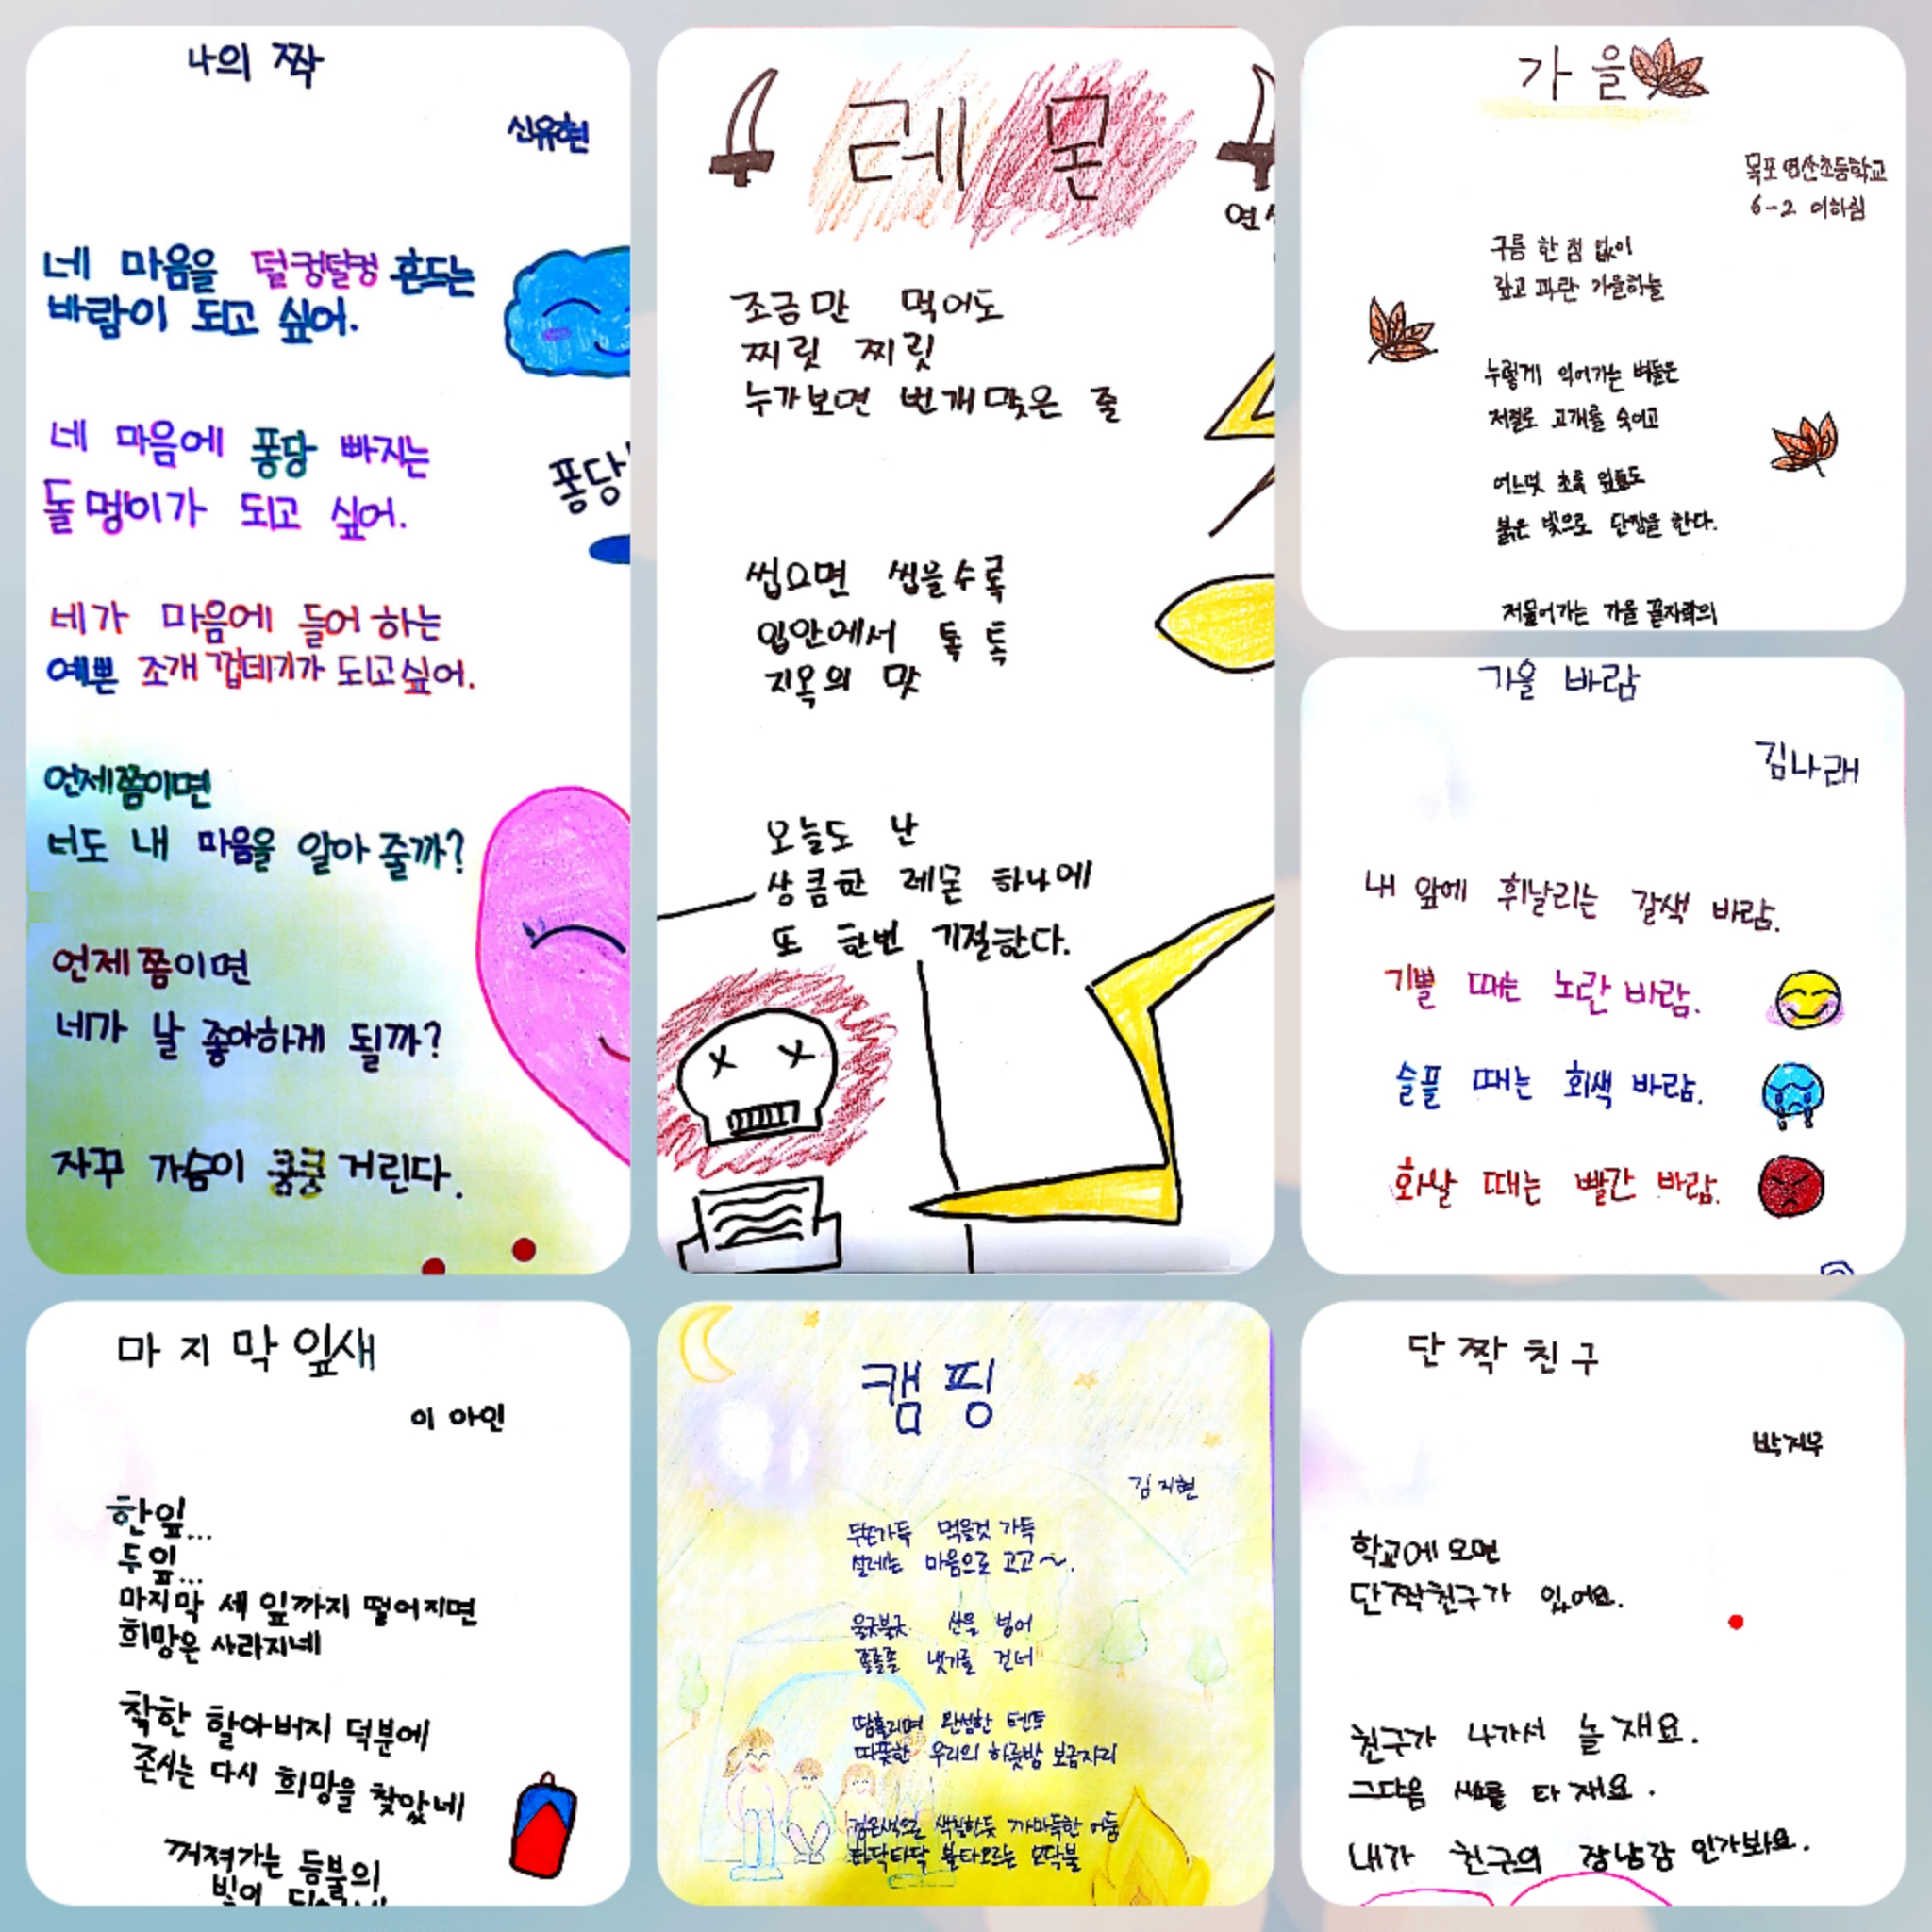 나의 짝
신유현
네 마음을 덜컹덜컹 흔드는
바람이 되고 싶어.
네 마음에 퐁당 빠지는
돌멩이가 되고 싶어.
네가 마음에 들어 하는
예쁜 조개 껍데기가 되고싶어.
언제쯤이면
너도 내 마음을 알아 줄까?
언제쯤이면
네가 날 좋아하게 될까?
자꾸 가슴이 쿵쿵 거린다.
퐁당
레몬
조금만 먹어도
찌릿 찌릿
누가보면 번개맞은 줄
씹으면 씹을수록
입안에서 톡 톡
지옥의 맛
오늘도 난
상큼한 레몬 하나에
또 한번 기절한다.
가을
목포연산초등학교
6-2 이하림
구름 한 점 없이
높고 파란 가을하늘
누렇게 익어가는 벼들은
저절로 고개를 숙이고
어느덧 초록 잎들도
붉은 빛으로 단장을 한다.
저물어가는 가을 끝자락의
가을 바람
김나래
내 앞에 휘날리는 갈색 바람.
기쁠 때는 노란 바람.
슬플 때는 회색 바람.
화날 때는 빨간 바람.
마지막잎새
이 아인
한잎...
두잎...
마지막 세 잎까지 떨어지면
희망은 사라지네
착한 할아버지 덕분에
존시는 다시 희망을 찾았네
꺼져가는 등불의
캠핑
김지현
두손가득 먹을것 가득
설레는 마음으로 고고~.
울긋불긋 산을 넘어
졸졸졸 냇가를 건너
땀흘리며 완성한 텐트
따뜻한 우리의 하룻밤 보금자리
검은색으로 색칠한듯 까마득한 어둠
타닥타닥 불타오르는 모닥불
단짝친구
박지우
학교에 오면
단짝친구가 있어요.
친구가 나가서 놀재요.
그다음 시소를 타재요.
내가 친구의 장난감 인가봐요.